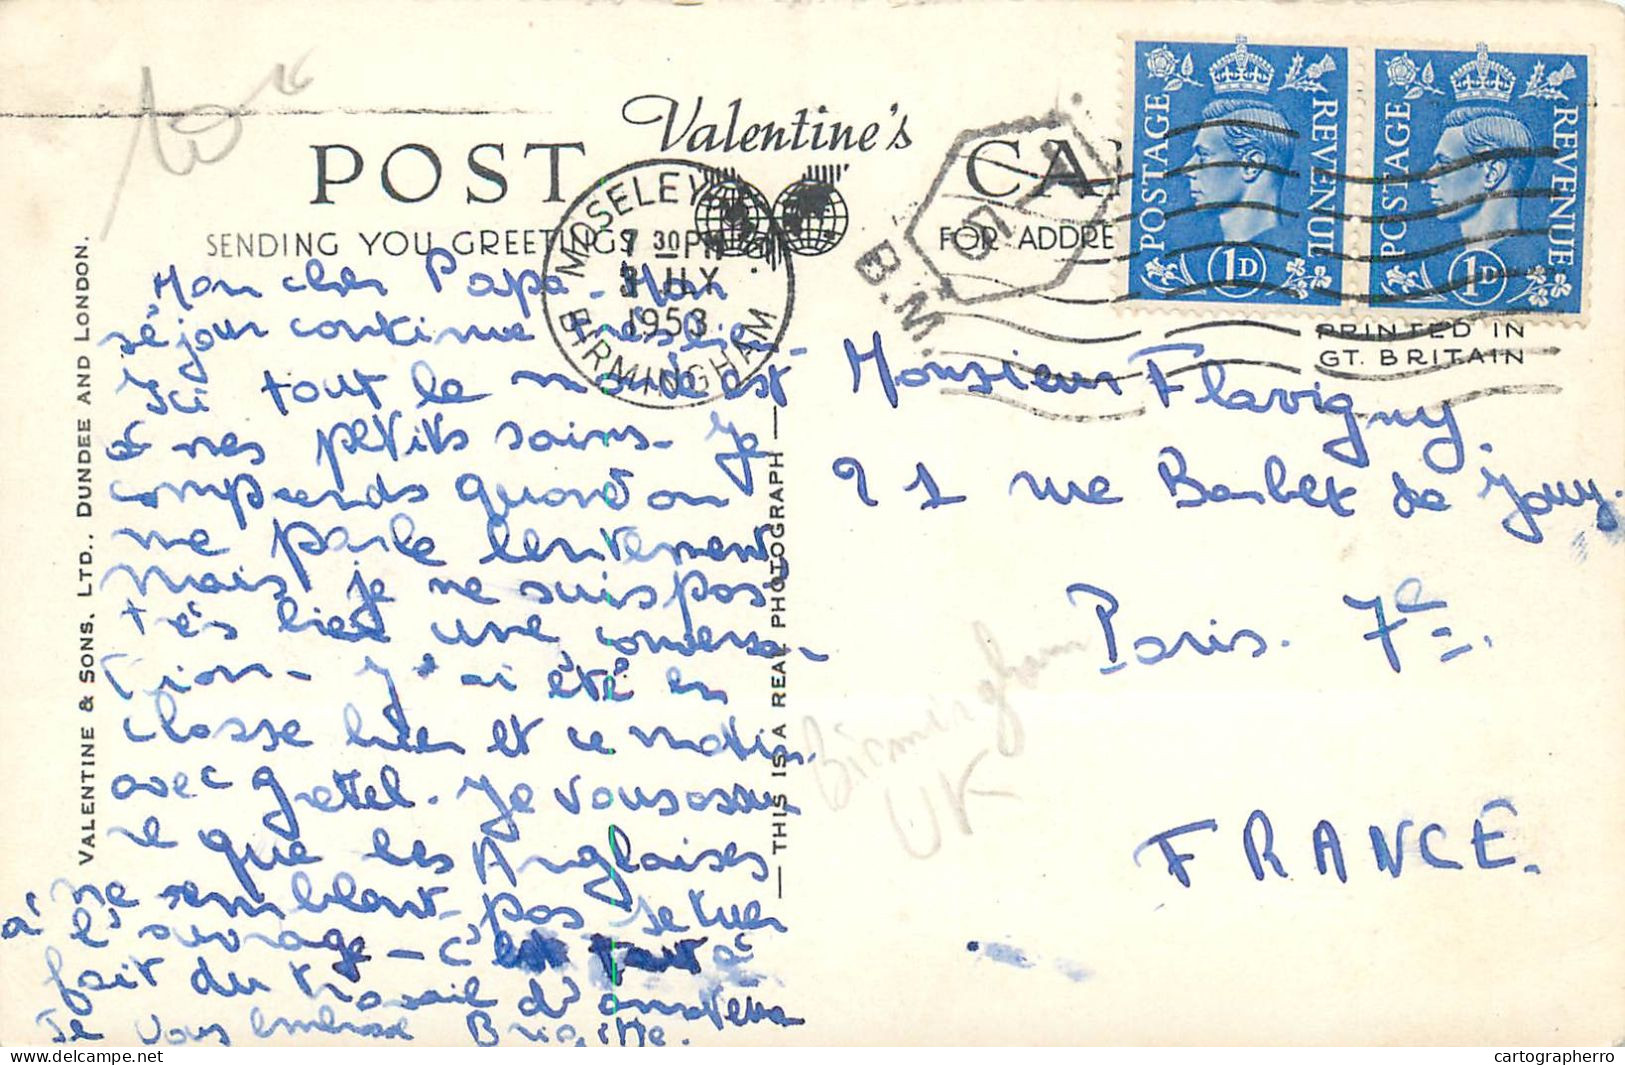 Valentine's
POST CA
SENDING YOU GREETINGS
FOR ADDRE
MOSELEY
7 30 PM
JLY
1953
BIRMINGHAM
B.M.
POSTAGE REVENUE
1D
POSTAGE REVENUE
1D
PRINTED IN
GT. BRITAIN
VALENTINE & SONS, LTD., DUNDEE AND LONDON.
THIS IS A REAL PHOTOGRAPH
Mon cher Papa - Mon
séjour continue très bien.
Ici tout le monde est
à mes petits soins. Je
comprends quand on
me parle lentement
mais je ne suis pas
très bien une conversa-
tion. J'ai été en
classe hier et ce matin
avec Gretel. Je vous assu
re que les Anglaises
ne semblent pas se tuer
à l'ouvrage - c'est tout à
fait du travail d'amateur
Je vous embrasse Brigitte.
Monsieur Flavigny.
21 rue Barbet de Jouy.
Paris. 7e.
FRANCE.
Birmingham
UK
cartographerro